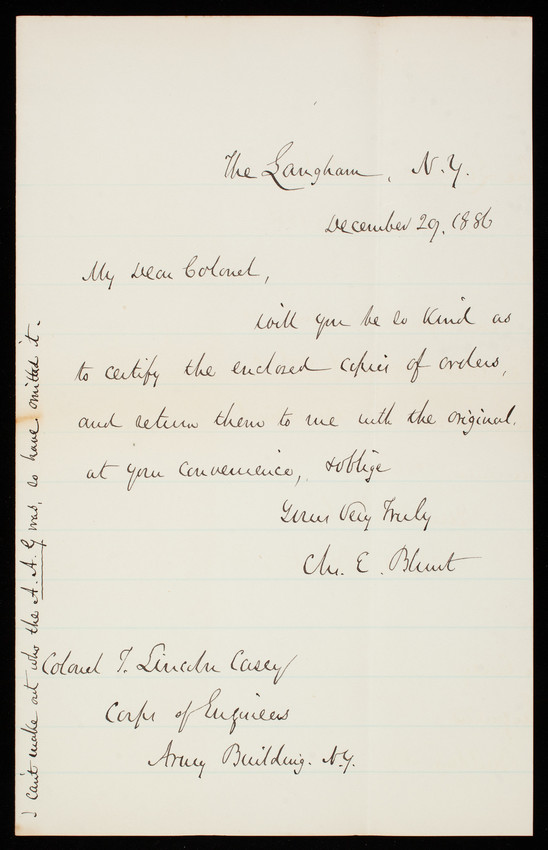 The Langham, N.Y.
December 29, 1886
My Dear Colonel,
Will you be so kind as
to certify the enclosed copies of orders,
and return them to me with the original,
at your convenience, & oblige
Yours Very Truly
Chs. E. Blunt
Colonel T. Lincoln Casey
Corps of Engineers
Army Building. N.Y.
I can't make out who the A.A.G was, so have omitted it.